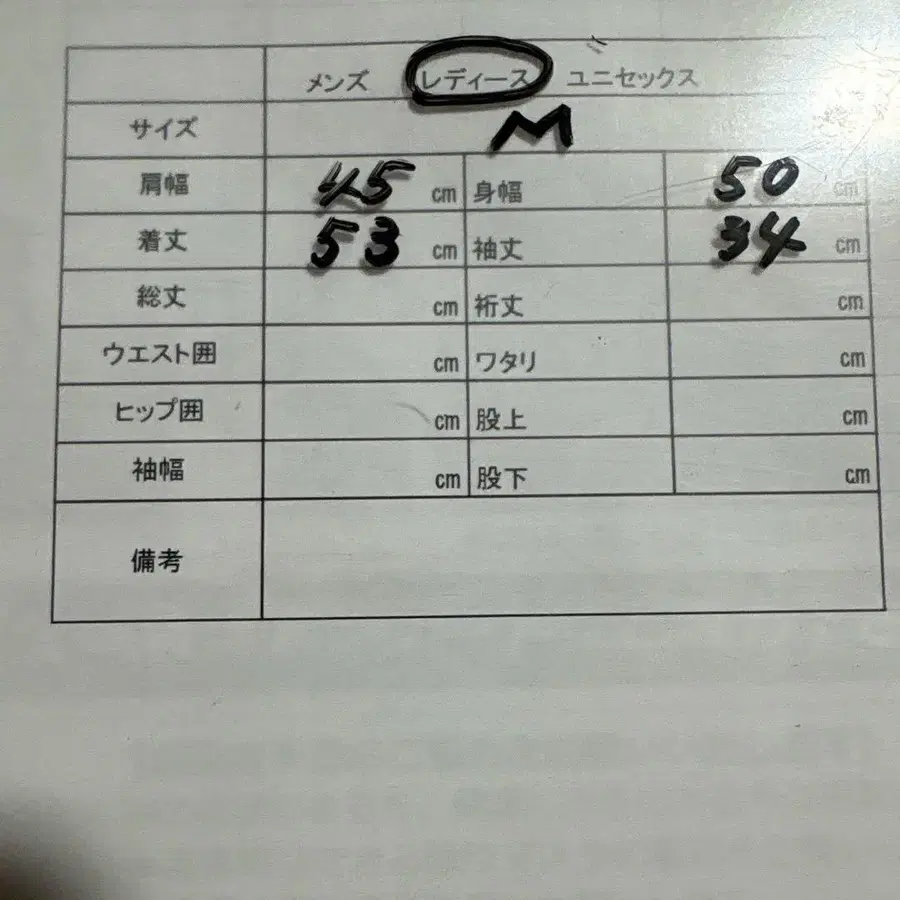 メンズ レディース ユニセックス
サイズ M
肩幅 45 cm 身幅 50 cm
着丈 53 cm 袖丈 34 cm
総丈 cm 裄丈 cm
ウエスト囲 cm ワタリ cm
ヒップ囲 cm 股上 cm
袖幅 cm 股下 cm
備考